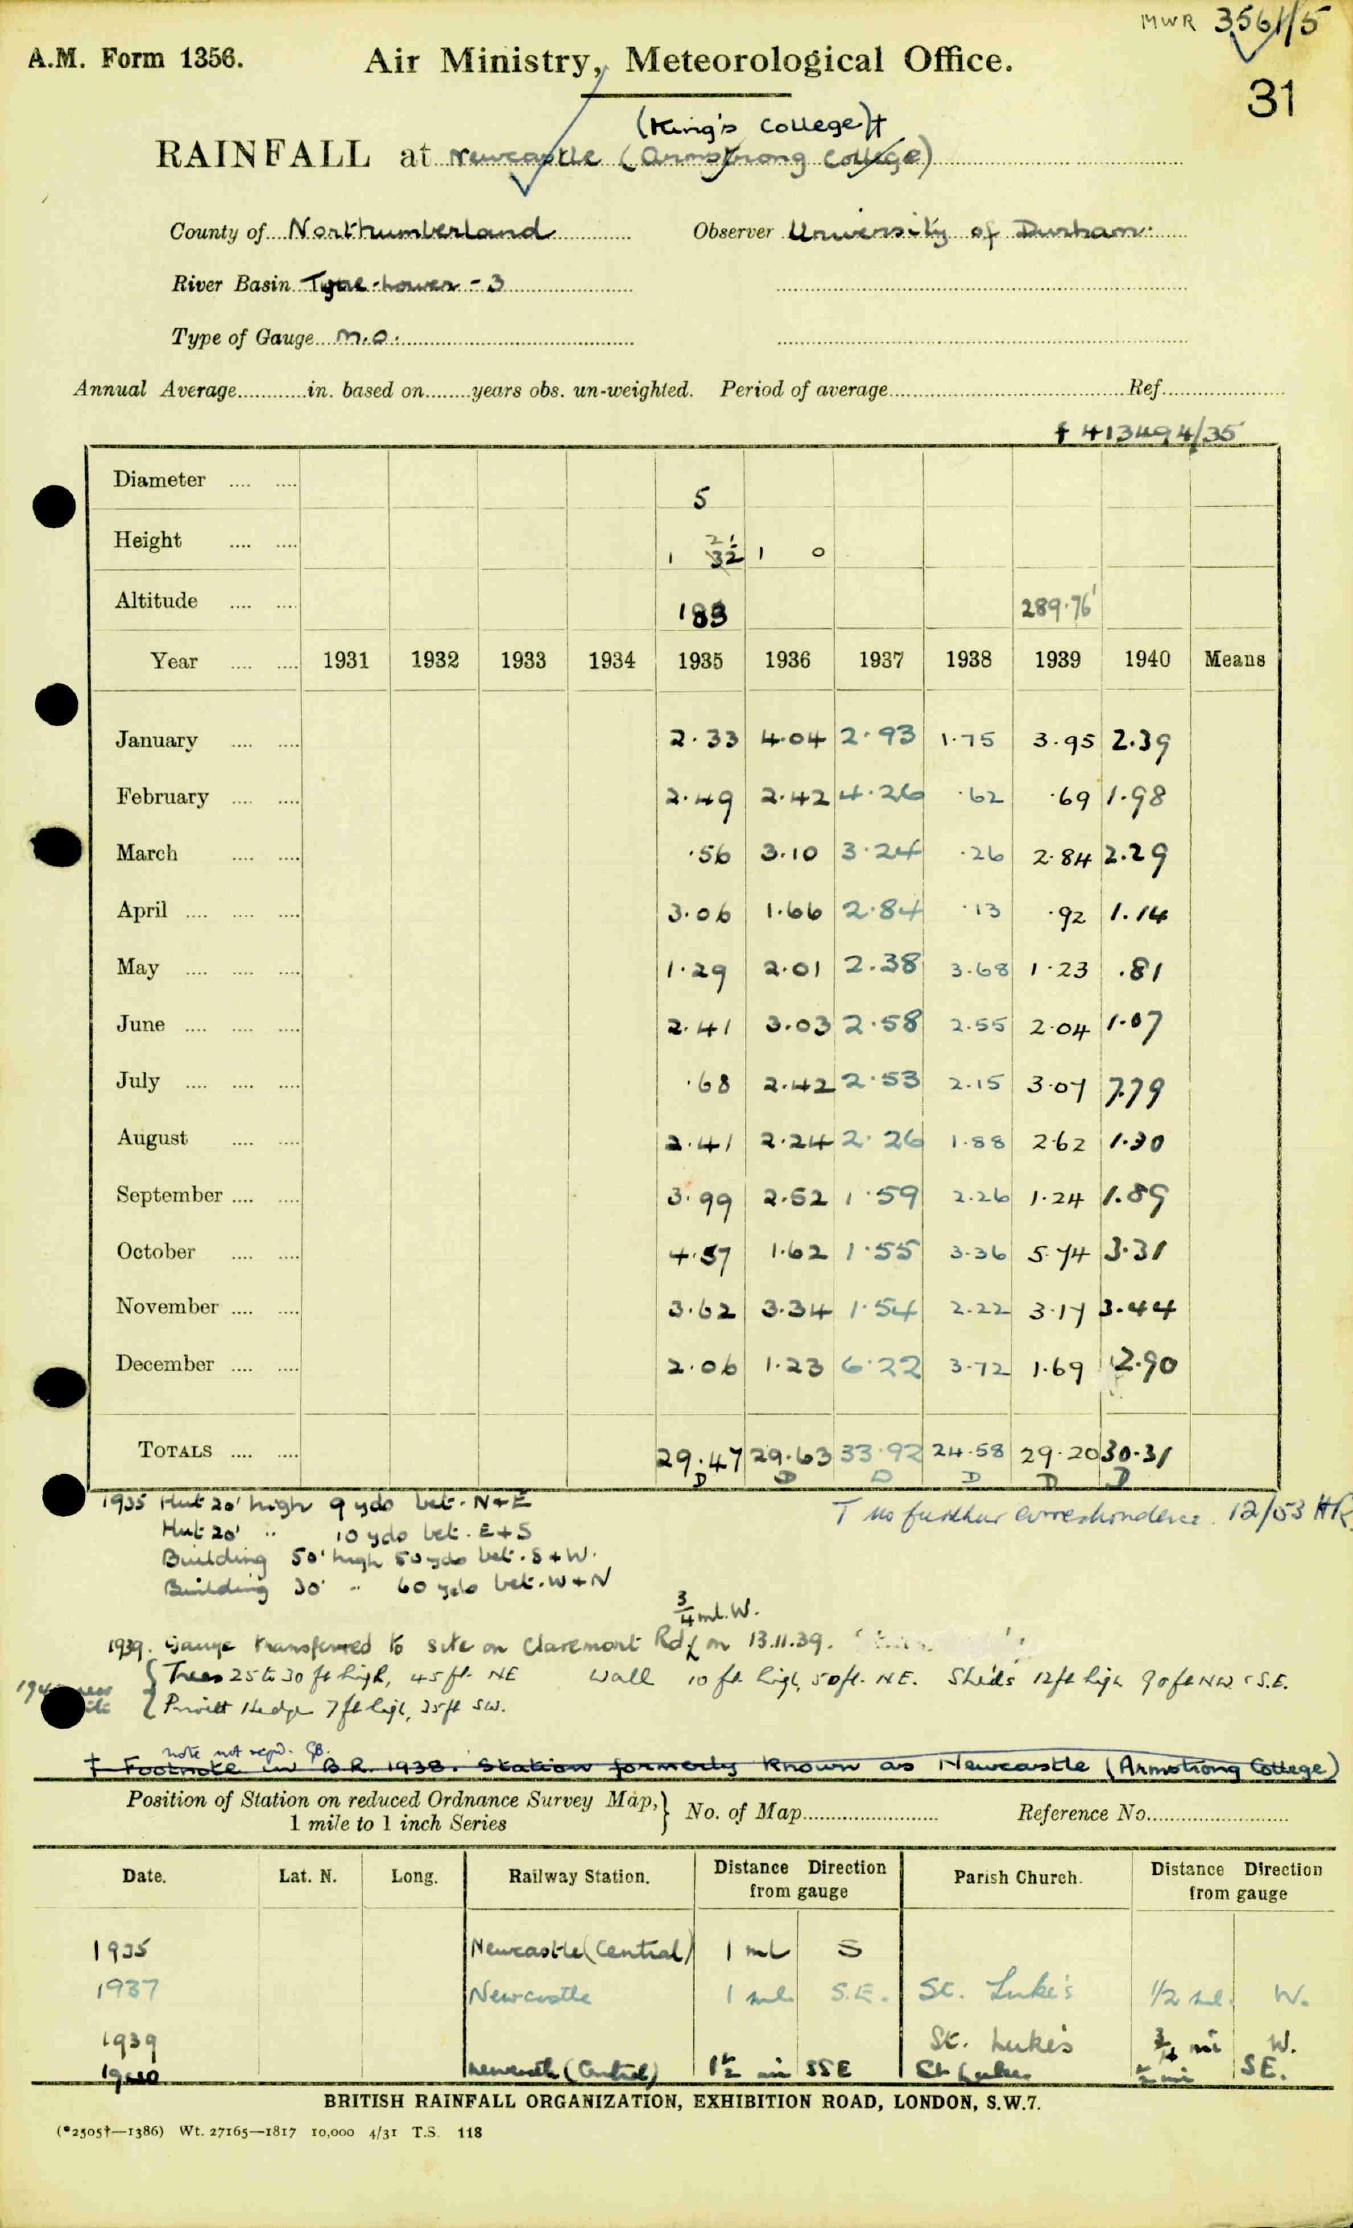 MWR 3561/5
A.M. Form 1356. Air Ministry, Meteorological Office.
31
(King's College)†
RAINFALL at Newcastle (Armstrong College)
County of Northumberland Observer University of Durham.
River Basin Tyne-Lower - 3
Type of Gauge M.O.
Annual Average............in. based on........years obs. un-weighted. Period of average........................Ref................
† 413494/35
Diameter .... .... 5
Height .... .... 1 2½ 1 0
Altitude .... .... 183 289.76'
Year .... .... 1931 1932 1933 1934 1935 1936 1937 1938 1939 1940 Means
January .... .... 2.33 4.04 2.93 1.75 3.95 2.39
February .... .... 2.49 2.42 4.26 .62 .69 1.98
March .... .... .56 3.10 3.24 .26 2.84 2.29
April .... .... .... 3.06 1.66 2.84 .13 .92 1.14
May .... .... .... 1.29 2.01 2.38 3.68 1.23 .81
June .... .... .... 2.41 3.03 2.58 2.55 2.04 1.07
July .... .... .... .68 2.42 2.53 2.15 3.07 7.79
August .... .... 2.41 2.24 2.26 1.88 2.62 1.30
September .... .... 3.99 2.52 1.59 2.26 1.24 1.89
October .... .... 4.57 1.62 1.55 3.36 5.74 3.31
November .... .... 3.62 3.34 1.54 2.22 3.17 3.44
December .... .... 2.06 1.23 6.22 3.72 1.69 2.90
TOTALS .... .... 29.47 29.63 33.92 24.58 29.20 30.31
D D D D D D
1935 Hut 20' high 9 yds bet. N+E
T no further correspondence. 12/53 HR
Hut 20' " 10 yds bet. E+S
Building 50' high 50 yds bet. S+W.
Building 30' " 60 yds bet. W+N
¾ ml. W.
1939. Gauge transferred to site on Claremont Rd on 13.11.39.
Trees 25 to 30 ft high, 45 ft NE Wall 10 ft high, 50 ft. NE. Sheds 12 ft high 90 ft NW & S.E.
Privet Hedge 7 ft high, 35 ft SW.
note not reqd. GB.
† Footnote in B.R. 1938. Station formerly known as Newcastle (Armstrong College)
Position of Station on reduced Ordnance Survey Map, 1 mile to 1 inch Series } No. of Map........................ Reference No........................
Date. Lat. N. Long. Railway Station. Distance Direction from gauge Parish Church. Distance Direction from gauge
1935 Newcastle (Central) 1 ml S
1937 Newcastle 1 ml S.E. St. Luke's 1/2 ml. W.
1939 St. Luke's ¾ mi W.
1940 Newcastle (Central) 1½ mi SSE St Lukes ½ mi SE.
BRITISH RAINFALL ORGANIZATION, EXHIBITION ROAD, LONDON, S.W.7.
(*2505†—1386) Wt. 27165—1817 10,000 4/31 T.S. 118